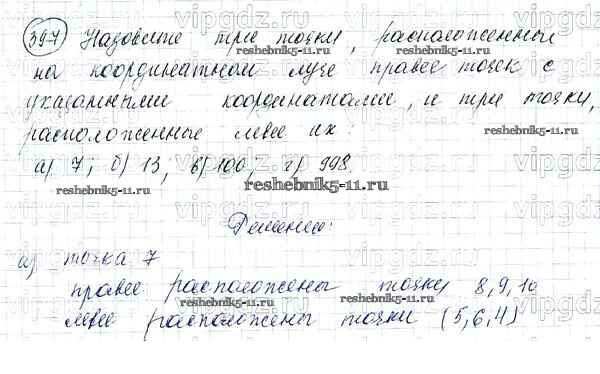 397) Назовите три точки, расположенные
на координатном луче правее точек с
указанными координатами, и три точки,
расположенные левее их:
а) 7; б) 13, в) 100, г) 998.
Решение:
а) точка 7
правее расположены точки 8, 9, 10
левее расположены точки (5, 6, 4)
vipgdz.ru
reshebnik5-11.ru